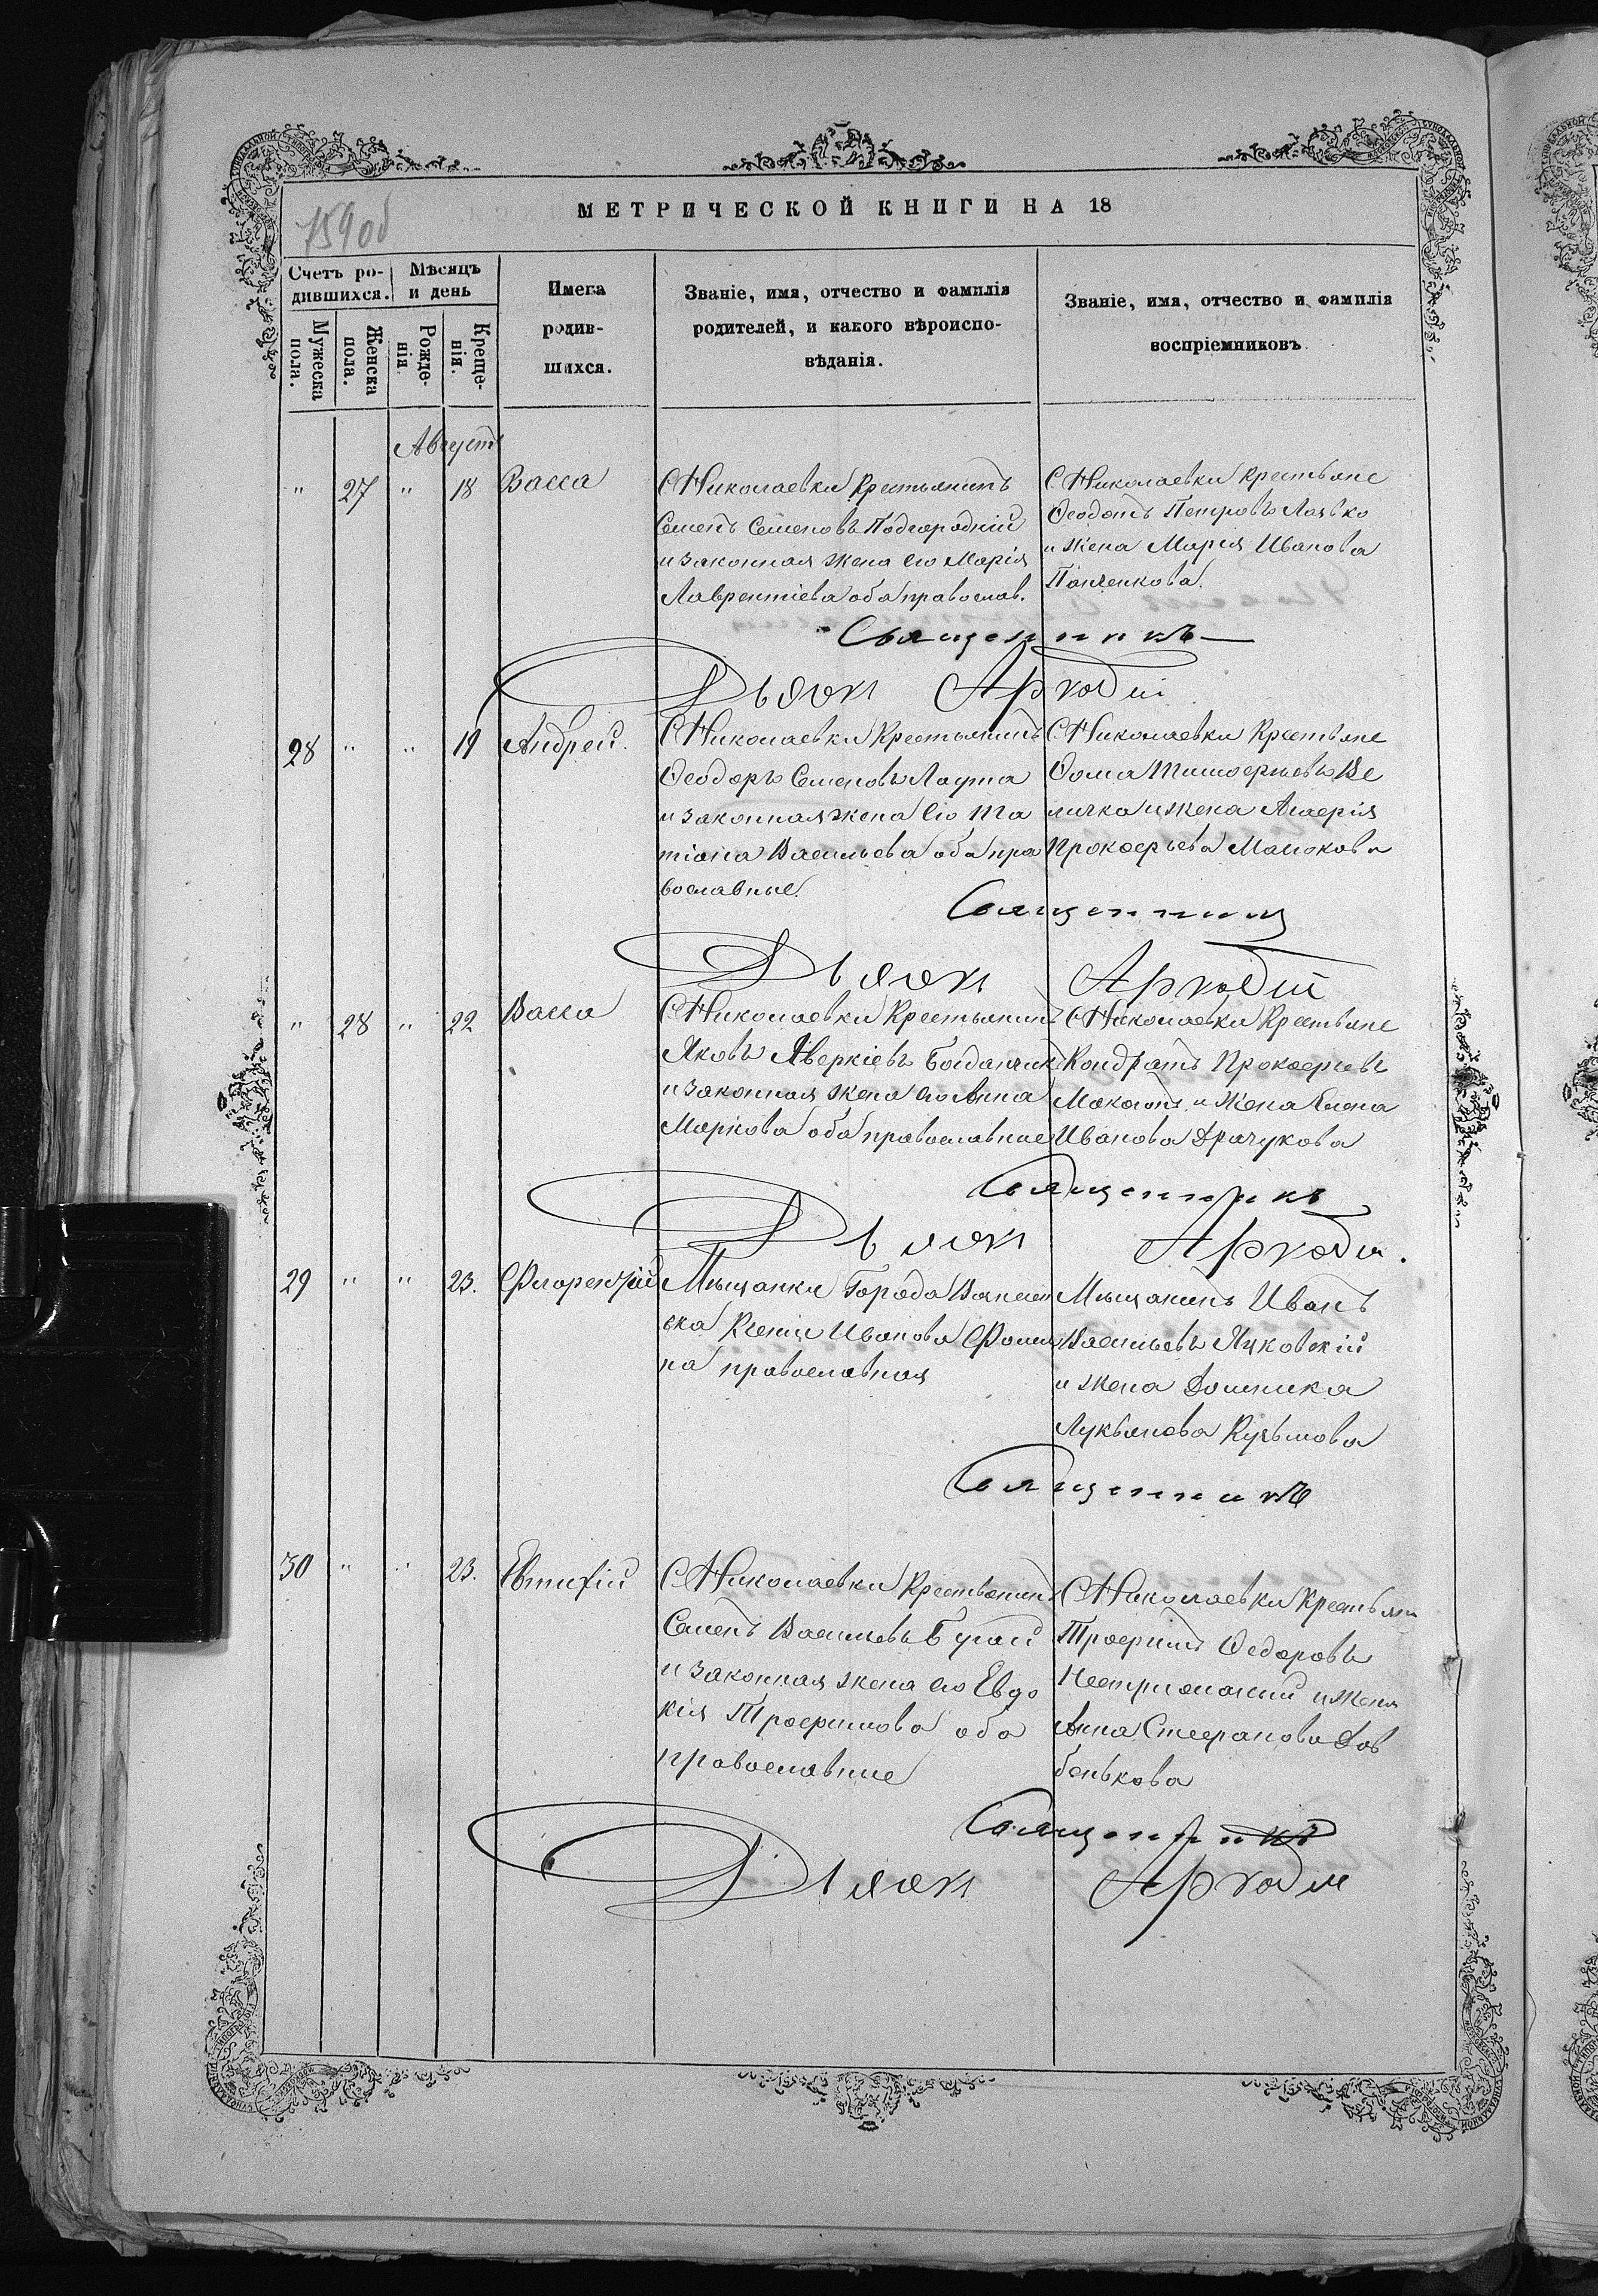 759об
МЕТРИЧЕСКОЙ КНИГИ НА 18
Счетъ ро-
дившихся.
Мѣсяцъ
и день
Мужеска
пола.
Женска
пола.
Рожде-
нія
Креще-
нія.
Имена
родив-
шихся.
Званіе, имя, отчество и фамилія
родителей, и какого вѣроиспо-
вѣданія.
Званіе, имя, отчество и фамилія
воспріемниковъ
Августъ
" 27 " 18 Васса
С Николаевки Крестьянинъ
Семенъ Семеновъ Подгородній
и законная жена его Марія
Лаврентіева оба православ.
С Николаевки крестьяне
Ѳеодотъ Петровъ
и жена Марія Иванова
Панченкова.
Священникъ
Дьякон Аркадій
28 " " 19 Андрей.
С Николаевки Крестьянинъ
Ѳеодоръ Семеновъ Лаута
и законная жена его Та
тіана Васильева оба пра
вославные.
С Николаевки Крестьяне
Ѳома Тимоѳеевъ Ве
личко и жена
Прокофьева
Священникъ
Дьякон Аркадій
" 28 " 22 Васса
С Николаевки Крестьянинъ
Яковъ Аверкіевъ
и законная жена его Анна
Маркова оба православные
С Николаевки Крестьяне
Кондратъ Прокофьевъ
и жена Елена
Иванова Драчукова
Священникъ
Дьякон Аркадій
29 " " 23. Флорентій
Мѣщанки города Вознесен
ска Ксенія Иванова Фоми
на православная
Мѣщанинъ Иванъ
Васильевъ
и жена Домника
Лукьянова Кузьмова
Священникъ
30 " " 23. Евтихій
С Николаевки Крестьянинъ
Семенъ Васильевъ Бугай
и законная жена его Евдо
кія Трофимова оба
православные
С Николаевки крестьяне
Трофимъ Ѳедоровъ
и жена
Анна Стефанова Дов
бенькова
Священникъ
Дьякон Аркадій